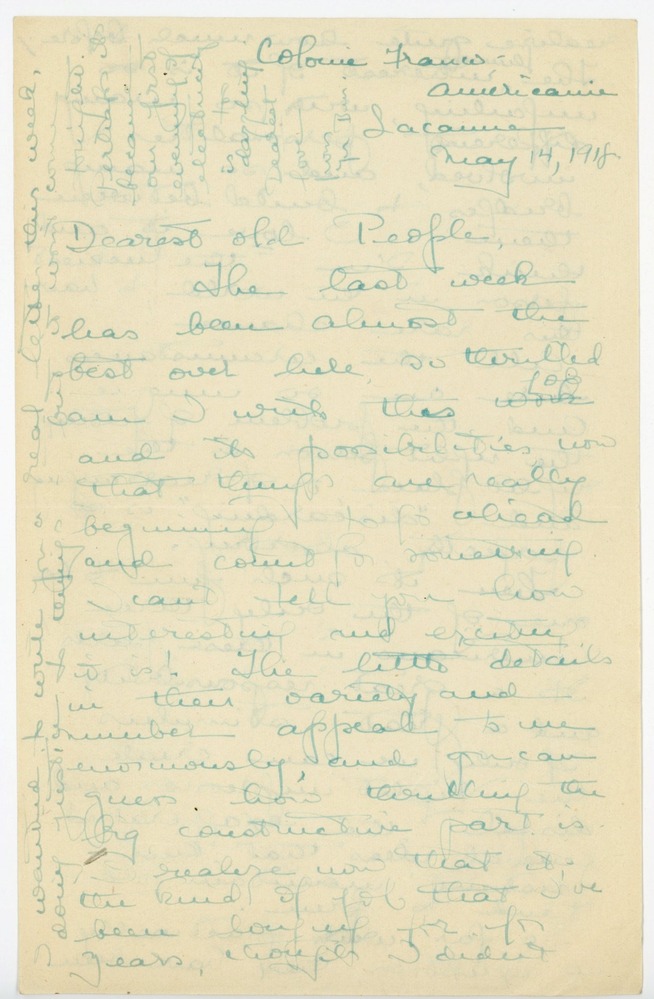 Colonie Franco-
Américaine
Lacaune
May 14, 1918.
Dearest old People,
The last week
has been almost the
best over here, so thrilled
am I with this work job
and its possibilities now
that things are really
beginning to forge ahead
and count for something.
I can't tell you how
interesting and exciting
it is! The little details
in their variety and
number appeal to me
enormously, and you can
guess how thrilling the
big constructive part is.
I realize now that it's
the kind of job that I've
been longing for for
years, though I didn't
I wanted to write you a real letter this week,
doing justice to things
tonight.
Perhaps it's
because
our first
evening of
electricity
is
dazzling
Dearest
love
from